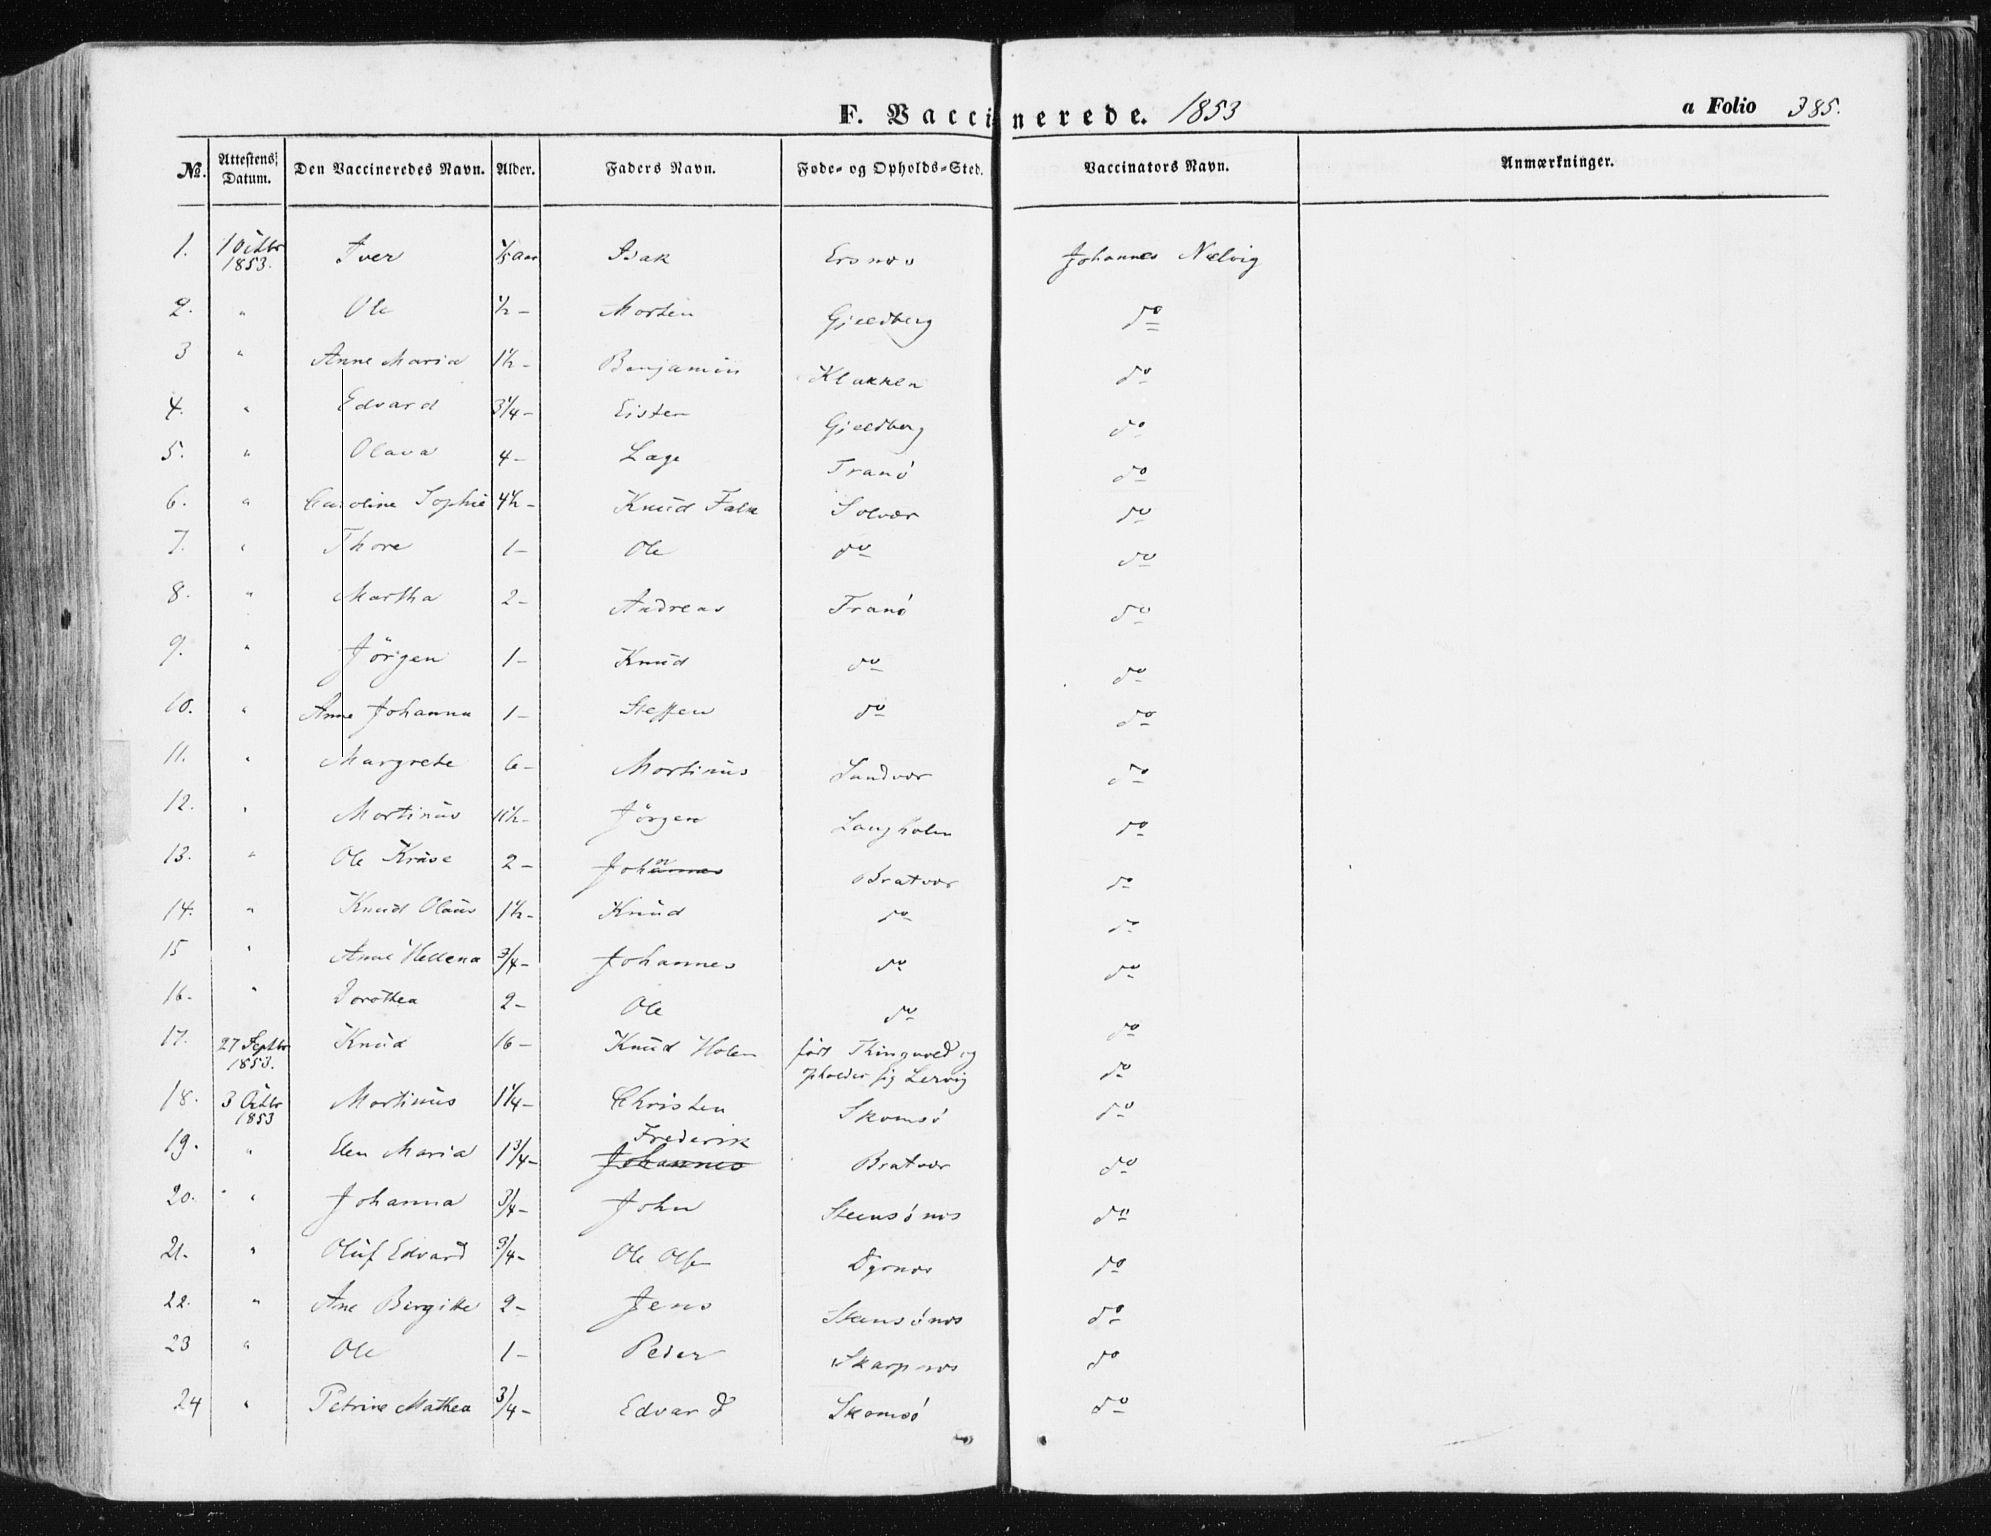 F. Vaccinerede. 1853 a Folio 385.
No. Attestens Datum. Den Vaccineredes Navn. Alder. Faders Navn. Føde- og Opholds-Sted. Vaccinators Navn. Anmærkninger.
1. 1 Octbr 1853. Iver Isak Ersnæs Johannes Nelvig
2. " Ole ½ - Morten Gjeldberg do
3 " Anne Maria 1½ - Benjamin Klakken do
4. " Edvard 3¼ - Eisten Gjeldberg do
5. " Olava 4 - Lage Tranö do
6. " Caroline Sophie 4½ - Knud Falk Solvær do
7. " Thore 1 - Ole do do
8. " Martha 2 - Andreas Tranö do
9. " Jörgen 1 - Knud do do
10. " Anne Johanna 1 - Steffen do do
11. " Margrete 6 - Mortinus Sundvær do
12. " Mortinus 11½ - Jörgen Langholm do
13. " Ole Kruse 2 - Johannes Bratvær do
14. " Knud Olaus 1½ - Knud do do
15 " Anne Hellena 3/4 - Johannes do do
16. " Dorothea 2 - Ole do do
17. 27 Septbr 1853. Knud 16 - Knud Holen födt Thingvold og opholder sig Lervig do
18. 3 Octbr 1853 Mortinus 1¼ - Christen Skomsö do
19. " Elen Maria 1¾ - Frederik Johannes Bratvær do
20. " Johanna 3/4 - John Steensönæs do
21. " Oluf Edvard 3/4 - Ole Olsen Dyrnæs do
22. " Ane Birgitte 2 - Jens Steensönæs do
23 " Ole 1 - Peder Skarpnæs do
24 " Petrine Mathea 3/4 - Edvard Skomsö do